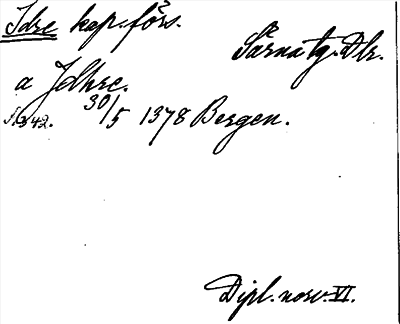 Idre kap.förs.
Särna tg. Dlr.
a Jdhre.
S. 342. 30/5 1378 Bergen.
Dipl. norv. VI.